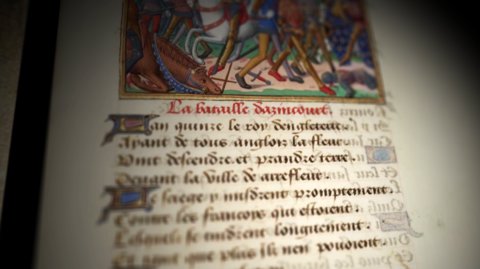 La bataille dazincourt.
Lan quinze le roy dengleterre
Ayant de tous anglois la fleur
Vint descendre et prandre terre
Deuant la ville de arrefleur
Le siege y misdrent promptement
Contre les francois qui estoient
Lesquels se tindrent longuement
Et tant que plus ilz nen pouoient